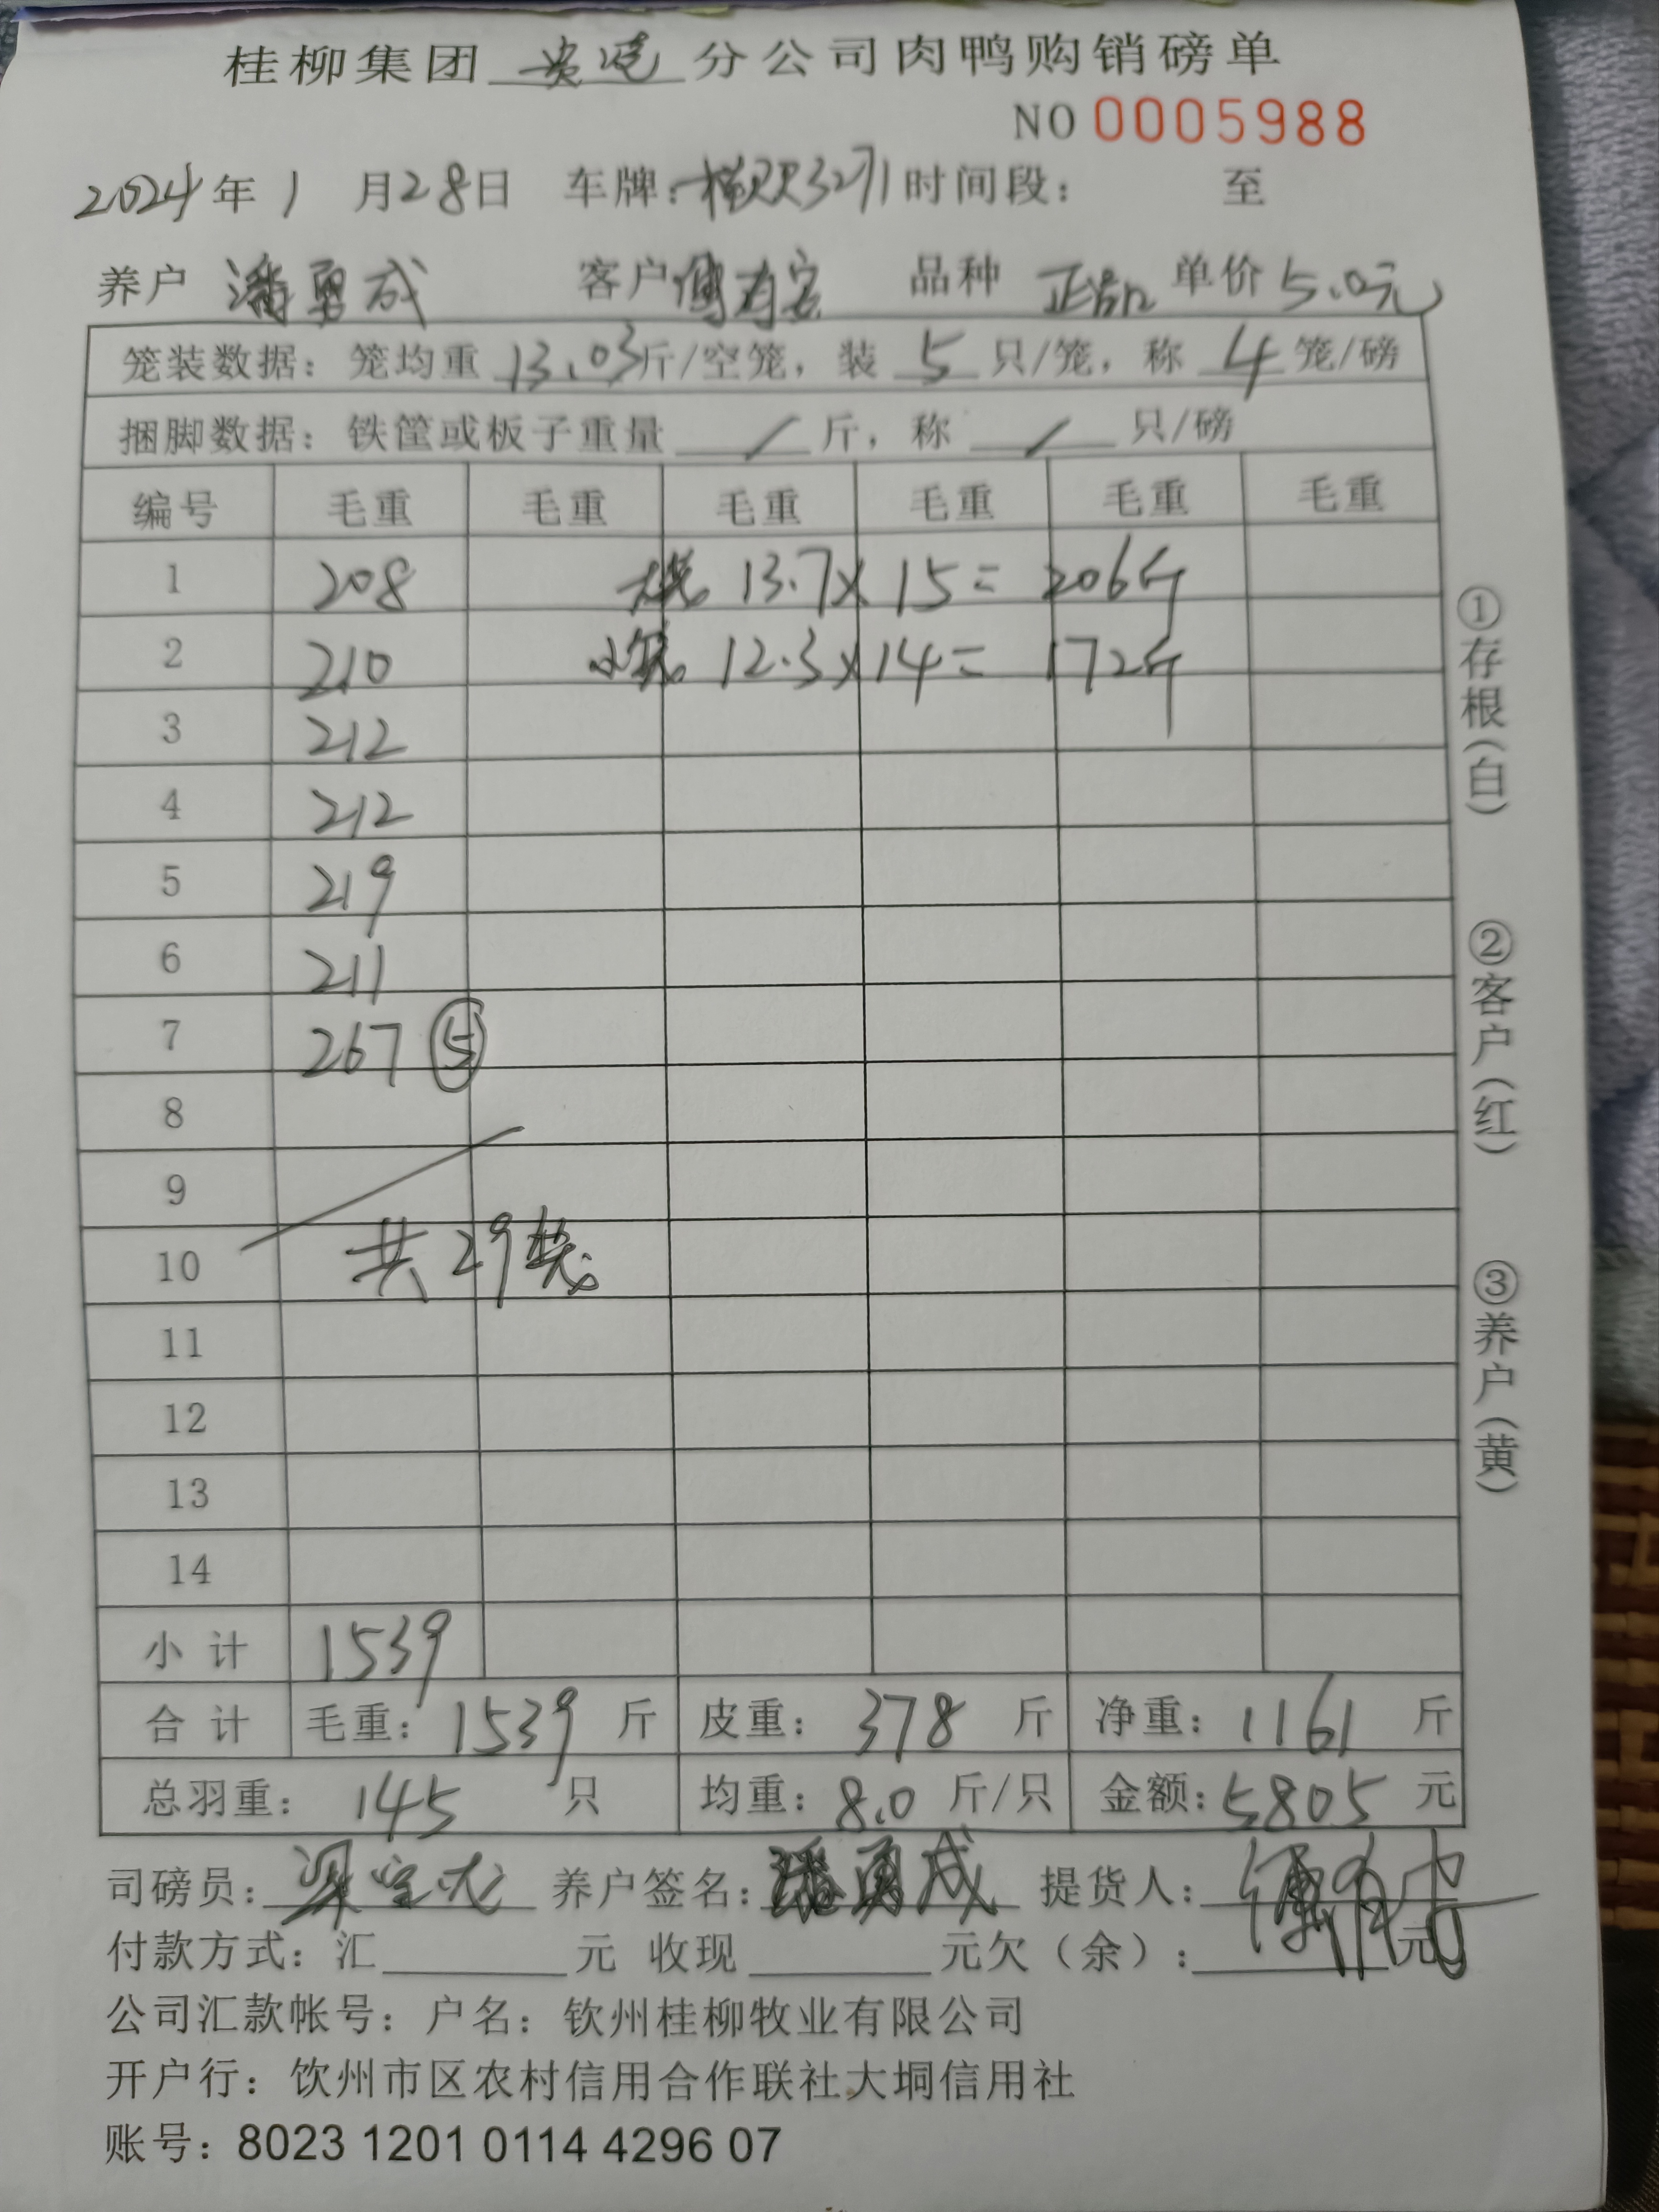 桂柳集团 贵港 分公司肉鸭购销磅单
NO 0005988
2024 年 1 月 28 日 车牌: 3271 时间段: 至
养户 潘勇成 客户 傅有宏 品种 正品 单价 5.0元
笼装数据: 笼均重 13.03 斤/空笼, 装 5 只/笼, 称 4 笼/磅
捆脚数据: 铁筐或板子重量 / 斤, 称 / 只/磅
编号 毛重 毛重 毛重 毛重 毛重 毛重
1 208 大笼 13.7×15= 206斤
2 210 小笼 12.3×14= 172斤
3 212
4 212
5 219
6 211
7 267 ⑤
8
9
10 共29笼
11
12
13
14
小 计 1539
合 计 毛重: 1539 斤 皮重: 378 斤 净重: 1161 斤
总羽重: 145 只 均重: 8.0 斤/只 金额: 5805 元
司磅员: 养户签名: 潘勇成 提货人:
付款方式: 汇 元 收现 元欠(余): 元
公司汇款帐号: 户名: 钦州桂柳牧业有限公司
开户行: 钦州市区农村信用合作联社大垌信用社
账号: 8023 1201 0114 4296 07
①存根(白) ②客户(红) ③养户(黄)